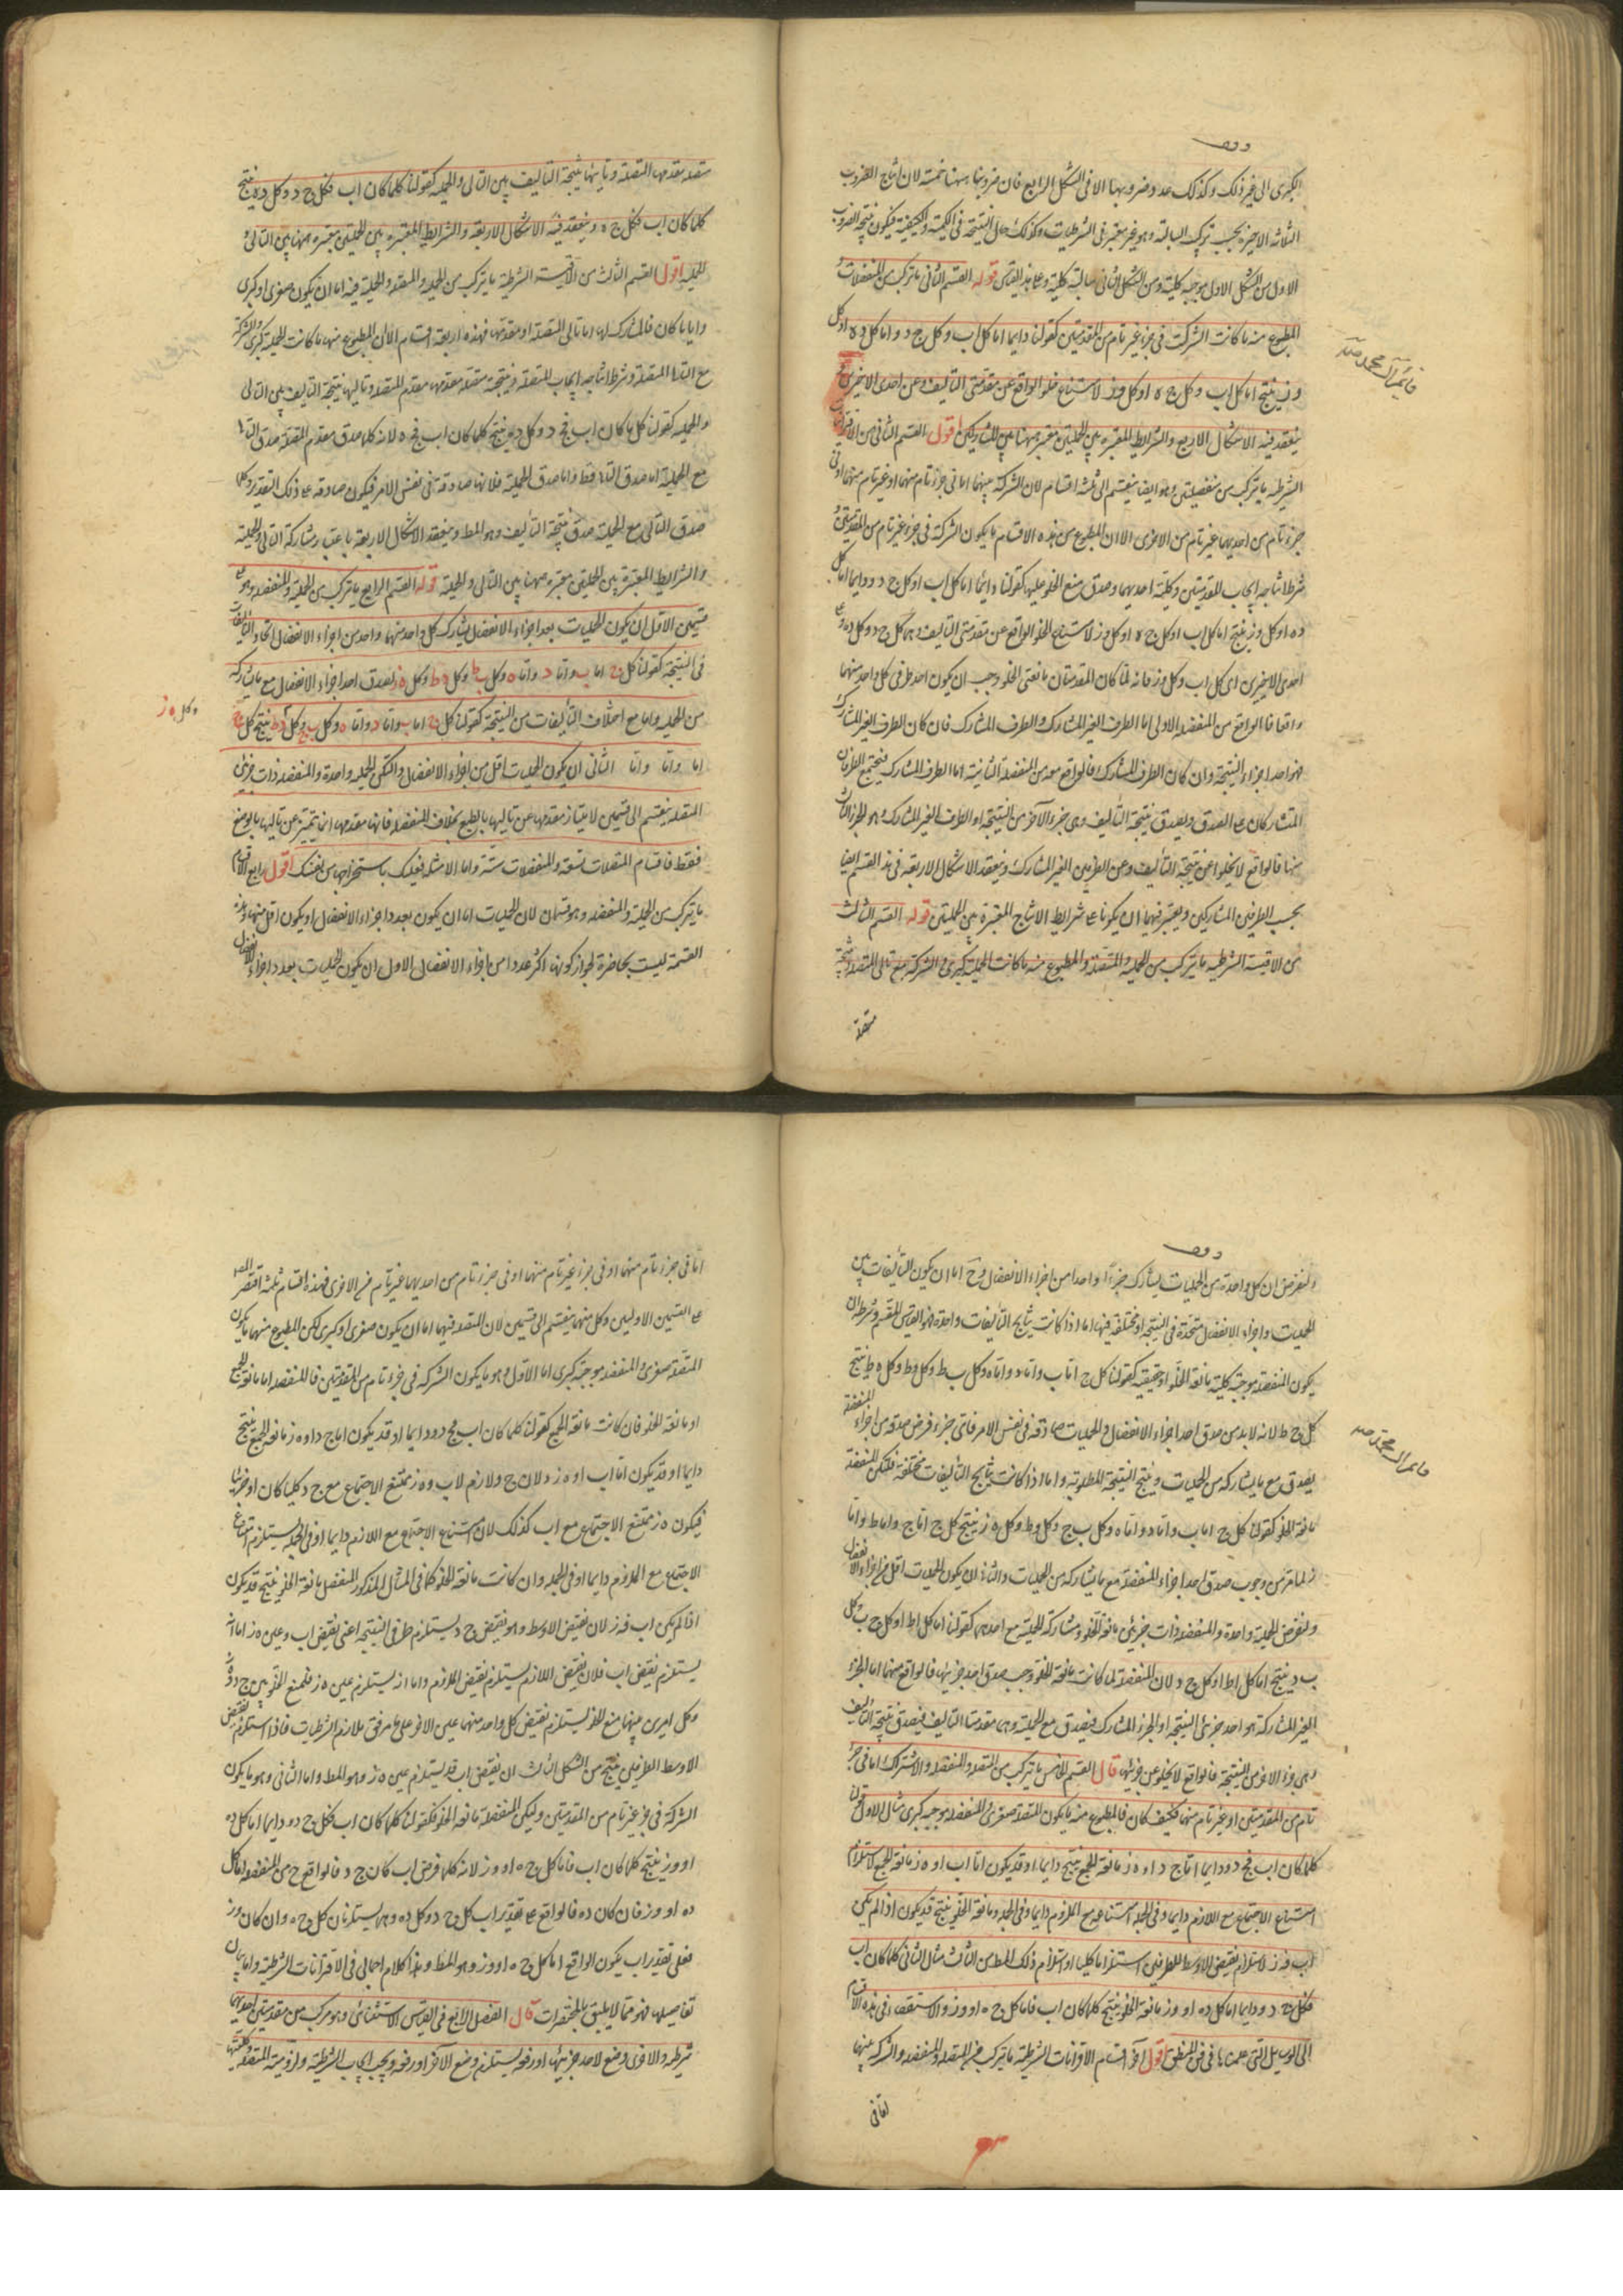 وقف
الكبرى الى غير ذلك وكذلك عدد ضروبها الا فى الشكل الرابع فان ضروبها ههنا خمسة لان انتاج الضروب
الثلثة الاخيرة بحسب تركيب السالبة وهو غير معتبر فى الشرطيات وكذلك حال النتيجة فى الكمية والكيفية فيكون نتيجة الضرب
الاول من الشكل الاول موجبة كلية ومن الشكل الثانى سالبة كلية وعلى هذا القياس قوله القسم الثانى ما يتركب من المنفصلات و
المطبوع منه ما كانت الشركة فى جزء غير تام من المقدمتين كقولنا دايما اما كل اب وكل ج د واما كل د ه او كل
و ز ينتج اما كل اب وكل ج ه او كل و ز لامتناع خلو الواقع عن مقدمتى التاليف وعن احدى الاخريين و
ينعقد فيه الاشكال الاربع والشرايط المعتبره بين الحمليتين معتبرة ههنا بين المتشاركين اقول القسم الثانى من الاقترانيات
الشرطية ما يتركب من منفصلتين وهو ايضا ينقسم الى ثلثة اقسام لان الشركة بينهما اما فى جزء تام منهما او غير تام منهما او فى
جزء تام من احديهما غير تام من الاخرى الا ان المطبوع من هذه الاقسام ما يكون الشركة فى جزء غير تام من المقدمتين و
شرط انتاجه ايجاب المقدمتين وكلية احديهما وصدق منع الخلو عليهما كقولنا دائما اما كل اب او كل ج د ودايما اما كل
د ه او كل و ز ينتج اما كل اب او كل ج ه او كل و ز لامتناع الخلو الواقع عن مقدمتى التاليف وهما كل ج د وكل د ه وعن
احدى الاخريين اى كل اب وكل و ز فانه لما كان المقدمتان مانعتى الخلو وجب ان يكون احد طرفى كل واحد منهما
واقعا فالواقع من المنفصلة الاولى اما الطرف الغير المشارك او الطرف المشارك فان كان الطرف الغير المشارك
فهو احد اجزاء النتيجة وان كان الطرف المشارك فالواقع معه من المنفصلة الثانية اما الطرف المشارك فيجتمع الطرفان
المتشاركان على الصدق ويصدق نتيجة التاليف وهى جزء الآخر من النتيجة او الطرف الغير المشارك وهو الجزء الثالث
منها فالواقع لا يخلوا عن نتيجة التأليف وعن الطرفين الغير المشاركين وينعقد الاشكال الاربعة فى هذا القسم ايضا
بحسب الطرفين المشاركين ويعتبر فيهما ان يكونا على شرايط الانتاج المعتبرة بين الحمليتين قوله القسم الثالث
من الاقيسة الشرطية ما يتركب من الحملية والمتصلة والمطبوع منه ما كانت الحملية كبرى والشركة مع تالى المتصلة ونتيجته
متصلة
متصلة مقدمها مقدم المتصلة وتاليها نتيجة التأليف بين التالى والحملية كقولنا كلما كان اب فكل ج د وكل د ه ينتج
كلما كان اب فكل ج ه وينعقد فيه الاشكال الاربعة والشرايط المعتبرة بين الحمليتين معتبرة ههنا بين التالى و
الحملية اقول القسم الثالث من الاقيسة الشرطية ما يتركب من الحملية والمتصلة والحملية فيه اما ان يكون صغرى او كبرى
وايا ما كان فالمشارك لها اما تالى المتصلة او مقدمها فهذه اربعة اقسام الا ان المطبوع منها ما كانت الحملية كبرى والشركة
مع التالى المتصلة وشرط انتاجه ايجاب المتصلة ونتيجته متصلة مقدمها مقدم المتصلة وتاليها نتيجة التاليف بين التالى
والحملية كقولنا كل ما كان اب فج د وكل د ه ينتج كلما كان اب فج ه لانه كلما صدق مقدم المتصلة صدق التالى
مع الحملية اما صدق التالى فظ واما صدق الحملية فلانها صادقة فى نفس الامر فيكون صادقة على ذلك التقدير وكلما
صدق التالى مع الحملية صدق نتيجة التأليف وهو المط وينعقد الاشكال الاربعة باعتبار مشاركة التالى والحملية
والشرايط المعتبرة بين الحمليتين معتبرة ههنا بين التالى والحملية قوله القسم الرابع ما يتركب من الحملية والمنفصلة وهو على
قسمين الاول ان يكون الحمليات بعدد اجزاء الانفصال يشارك كل واحد منهما واحد من اجزاء الانفصال اتحاد التاليفات
فى النتيجة كقولنا كل ج اما ب واما د واما ه وكل ب ط وكل د ط وكل ه ط لصدق احد اجزاء الانفصال مع ما يشاركه
من الحملية واما مع اختلاف التأليفات من النتيجة كقولنا كل ج اما ب واما د واما ه وكل ب ج وكل د ط ينتج كل ج
وكل ه ز
اما واما واما الثانى ان يكون الحمليات اقل من اجزاء الانفصال ولتكن الحملية واحدة والمنفصلة ذات جزئين
المتصلة ينقسم الى قسمين لامتياز مقدمها عن تاليها بالطبع بخلاف المنفصلة فانها مقدمها انما يتميز عن تاليها بالوضع
فقط فاقسام المتصلات تسعة والمنفصلات ستة واما الامثلة فعليك باستخراجها من نفسك اقول رابع الاقسام
ما يتركب من الحملية والمنفصلة وهو قسمان لان الحمليات اما ان يكون بعدد اجزاء الانفصال او يكون اقل منها وهذه
القسمة ليست بحاضرة لجواز كونها اكثر عددا من اجزاء الانفصال الاول ان يكون الحمليات بعدد اجزاء الانفصال
وقف
ولنفرض ان كل واحدة من الحمليات يشارك جزءا واحدا من اجزاء الانفصال وح اما ان يكون التأليفات بين
الحمليات واجزاء الانفصال متحدة فى النتيجة او مختلفة فيها اما اذا كانت نتايج التاليفات واحدة فهو القياس المقسم وشرطه ان
يكون المنفصلة موجبة كلية مانعة الخلو او حقيقية كقولنا كل ج اما ب واما د واما ه وكل ب ط وكل د ط وكل ه ط ينتج
كل ج ط لانه لا بد من صدق احد اجزاء الانفصال والحمليات صادقة فى نفس الامر فاى جزء فرض صدقه من اجزاء المنفصلة
يصدق مع ما يشاركه من الحمليات وينتج النتيجة المطلوبة واما اذا كانت نتايج التأليفات مختلفة فلتكن المنفصلة
مانعة الخلو كقولنا كل ج اما ب واما د واما ه وكل ب ج وكل د ط وكل ه ز ينتج كل ج اما ج واما ط واما
ز لما مر من وجوب صدق احد اجزاء المنفصلة مع ما يشاركه من الحمليات والثانى ان يكون الحمليات اقل من اجزاء الانفصال
ولنفرض الحملية واحدة والمنفصلة ذات جزئين مانعة الخلو ومشاركة الحملية مع احدهما كقولنا اما كل اط او كل ج ب وكل
ب د ينتج اما كل اط او كل ج د لان المنفصلة لما كانت مانعة الخلو وجب صدق احد جزئيها فالواقع منهما اما الجزء
الغير المشاركة هو احد جزئى النتيجة او الجزء المشارك فيصدق مع الحملية وهما مقدمتا التاليف فيصدق نتيجة التاليف
وهى جزء الاخر من النتيجة فالواقع لا يخلو عن جزئيها قال القسم الخامس ما يتركب من المتصلة والمنفصلة والاشتراك اما فى جزء
تام من المقدمتين او غير تام منهما فكيف كان فالمطبوع منه ما يكون المتصلة صغرى والمنفصلة موجبة كبرى مثال الاول قولنا
كلما كان اب فج د ودايما اما ج د او ه ز مانعة الجمع ينتج دايما او قد يكون اما اب او ه ز مانعة الجمع لاستلزام
امتناع الاجتماع مع اللازم دايما وفى الجملة امتناعه مع الملزوم دايما وفى الجملة ومانعة الخلو ينتج قد يكون اذا لم يكن
اب فه ز لاستلزام نقيض الاوسط للطرفين استلزاما كليا واستلزام ذلك المط من الثالث مثال الثانى كلما كان اب
فكل ج د ودايما اما كل د ه او و ز مانعة الخلو ينتج كلما كان اب فاما كل ج ه او و ز والاستقصاء فى هذه الاقسام
الى الرسايل التى علمناها فى فن المنطق اقول آخر اقسام الاقترانات الشرطية ما يتركب من المتصلة والمنفصلة والشركة بينهما
اما فى
اما فى جزء تام منهما او فى جزء غير تام منهما او فى جزء تام من احديهما غير تام من الاخرى فهذه اقسام ثلثة اقتصر المص
على القسمين الاولين وكل منهما ينقسم الى قسمين لان المتصلة فيهما اما ان يكون صغرى او كبرى لكن المطبوع منهما ما يكون
المتصلة صغرى والمنفصلة موجبة كبرى اما الاول وهو ما يكون الشركة فى جزء تام من المقدمتين فالمنفصلة اما مانعة الجمع
او مانعة الخلو فان كانت مانعة الجمع كقولنا كلما كان اب فج د ودايما او قد يكون اما ج د او ه ز مانعة الجمع ينتج
دايما او قد يكون اما اب او ه ز لان ج د لازم لاب و ه ز ممتنع الاجتماع مع ج د كليا كان او جزئيا
فيكون ه ز ممتنع الاجتماع مع اب كذلك لان امتناع الاجتماع مع اللازم دايما او فى الجملة يستلزم امتناع
الاجتماع مع الملزوم دايما او فى الجملة وان كانت مانعة الخلو كما فى المثال المذكور المنفصل مانعة الخلو ينتج قد يكون
اذا لم يكن اب فه ز لان نقيض الاوسط وهو نقيض ج د يستلزم طرفى النتيجة اعنى نقيض اب وعين ه ز اما انه
يستلزم نقيض اب فلان نقيض اللازم يستلزم نقيض الملزوم واما انه يستلزم عين ه ز فلمنع الخلو بين ج د و ه ز
وكل امرين بينهما منع الخلو يستلزم نقيض كل واحد منهما عين الاخر على ما مر فى تلازم الشرطيات فاذا استلزم نقيض
الاوسط الطرفين ينتج من الشكل الثالث ان نقيض اب قد يستلزم عين ه ز وهو المط واما الثانى وهو ما يكون
الشركة فى جزء غير تام من المقدمتين وليكن المنفصلة مانعة الخلو فكقولنا كلما كان اب فكل ج د ودايما اما كل د ه
او و ز ينتج كلما كان اب فاما كل ج ه او و ز لانه كلما فرض اب كان ج د فالواقع ح من المنفصلة اما كل
د ه او و ز فان كان د ه فالواقع على تقدير اب كل ج د وكل د ه وهما يستلزمان كل ج ه وان كان و ز
فعلى تقدير اب يكون الواقع اما كل ج ه او و ز وهو المط وهذا كلام اجمالى فى الاقترانات الشرطية واما بيان
تفاصيلها فهو مما لا يليق بالمختصرات قال الفصل الرابع فى القياس الاستثنائى وهو مركب من مقدمتين احديهما
شرطية والاخرى وضع لاحد جزئيها او رفعه ليستلزم وضع الآخر او رفعه ويجب ايجاب الشرطية ولزومية المتصلة وكليتها